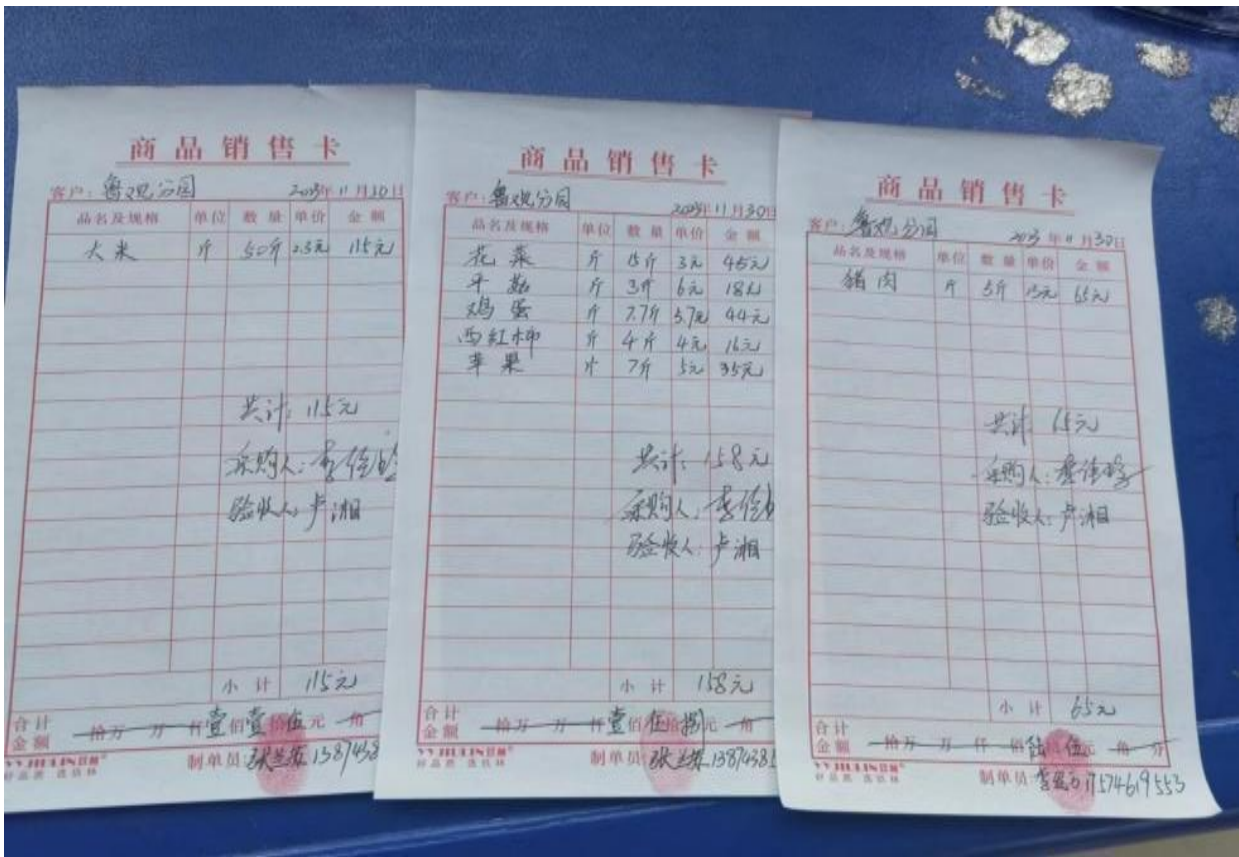 商品销售卡
客户：鲁观分园 2023年11月30日
品名及规格 单位 数量 单价 金额
大米 斤 50斤 2.3元 115元
共计：115元
采购人：
验收人：卢湘
小计 115元
合计金额 拾万 万 仟 壹佰壹拾伍元 角
制单员
商品销售卡
客户：鲁观分园 2023年11月30日
品名及规格 单位 数量 单价 金额
花菜 斤 15斤 3元 45元
平菇 斤 3斤 6元 18元
鸡蛋 斤 7.7斤 5.7元 44元
西红柿 斤 4斤 4元 16元
苹果 斤 7斤 5元 35元
共计：158元
采购人：
验收人：卢湘
小计 158元
合计金额 拾万 万 仟 壹佰伍拾捌元 角
制单员
商品销售卡
客户：鲁观分园 2023年11月30日
品名及规格 单位 数量 单价 金额
猪肉 斤 5斤 13元 65元
共计 65元
采购人：
验收人：卢湘
小计 65元
合计金额 拾万 万 仟 佰 陆拾伍元 角 分
制单员 17574619553